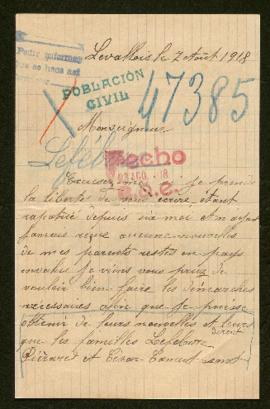 Levallois le 7 Août 1918
Pedir informes
que se haga así
POBLACIÓN
CIVIL
47385
Monseigneur
Hecho
AGO. 18
Excusez moi si je prends
la liberté de vous écrire étant
rapatrié depuis six moi et n'ayant
jamais reçue aucune nouvelle
de mes parents restés en pays
envahis je viens vous priez de
vouloir bien faire les démarches
nécessaires afin que je puisse
obtenir de leurs nouvelles et leurs
dirent
que les familles Lefebvre
Piéravet et César